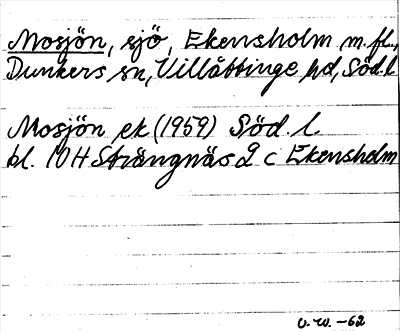 Mosjön, sjö, Ekensholm m.fl.,
Dunkers sn, Villåttinge hd, Söd.l.
Mosjön ek (1959) Söd. l.
bl. 10H Strängnäs 9 c Ekensholm
U.W. -62